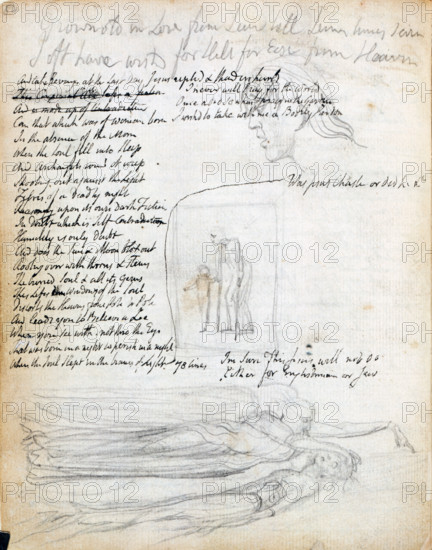 Grown old in Love from Seven till Seven times Seven
I oft have wishd for Hell for Ease from Heaven
And take Revenge at the last Day Jesus replied & thunders hurld
I never will Pray for the World
Once I did so when I prayd in the Garden
I wishd to take with me a Bodily Pardon
Can that which was of woman born
In the absence of the Morn
When the Soul fell into Sleep
And Archangels round it weep
Shooting out against the Light
Fibres of a deadly night
Reasoning upon its own Dark Fiction
In Doubt which is Self Contradiction
Humility is only Doubt
And does the Sun & Moon blot out
Rooting over with thorns & stems
The buried Soul & all its Gems
This Lifes dim Windows of the Soul
Distorts the Heavens from Pole to Pole
And leads you to Believe a Lie
When you see with not thro the Eye
That was born in a night to perish in a night
When the Soul slept in the beams of Light
78 lines
Was Jesus Chaste or did he &c
Im sure This Jesus will not do
Either for Englishman or Jew